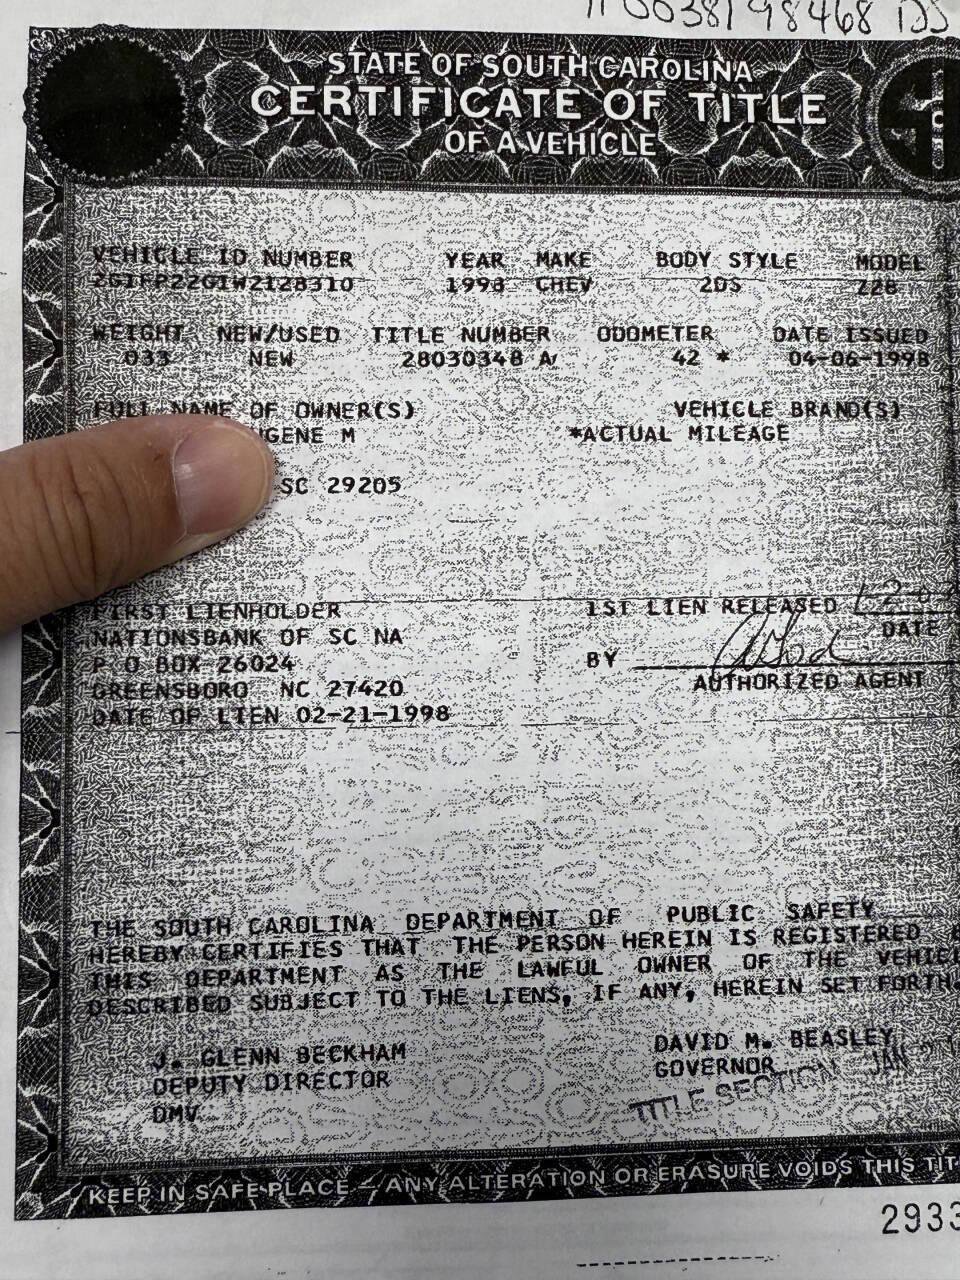 STATE OF SOUTH CAROLINA
CERTIFICATE OF TITLE
OF A VEHICLE
VEHICLE ID NUMBER YEAR MAKE BODY STYLE MODEL
2G1FP22G1W2128310 1998 CHEV 2DS Z28
WEIGHT NEW/USED TITLE NUMBER ODOMETER DATE ISSUED
033 NEW 28030348 A 42 * 04-06-1998
FULL NAME OF OWNER(S) VEHICLE BRAND(S)
UGENE M *ACTUAL MILEAGE
SC 29205
FIRST LIENHOLDER 1ST LIEN RELEASED
NATIONSBANK OF SC NA DATE
P O BOX 26024 BY
GREENSBORO NC 27420 AUTHORIZED AGENT
DATE OF LIEN 02-21-1998
THE SOUTH CAROLINA DEPARTMENT OF PUBLIC SAFETY
HEREBY CERTIFIES THAT THE PERSON HEREIN IS REGISTERED
THIS DEPARTMENT AS THE LAWFUL OWNER OF THE VEHICL
DESCRIBED SUBJECT TO THE LIENS, IF ANY, HEREIN SET FORTH.
J. GLENN BECKHAM DAVID M. BEASLEY
DEPUTY DIRECTOR GOVERNOR
DMV TITLE SECTION JAN
KEEP IN SAFE PLACE - ANY ALTERATION OR ERASURE VOIDS THIS TIT
2933